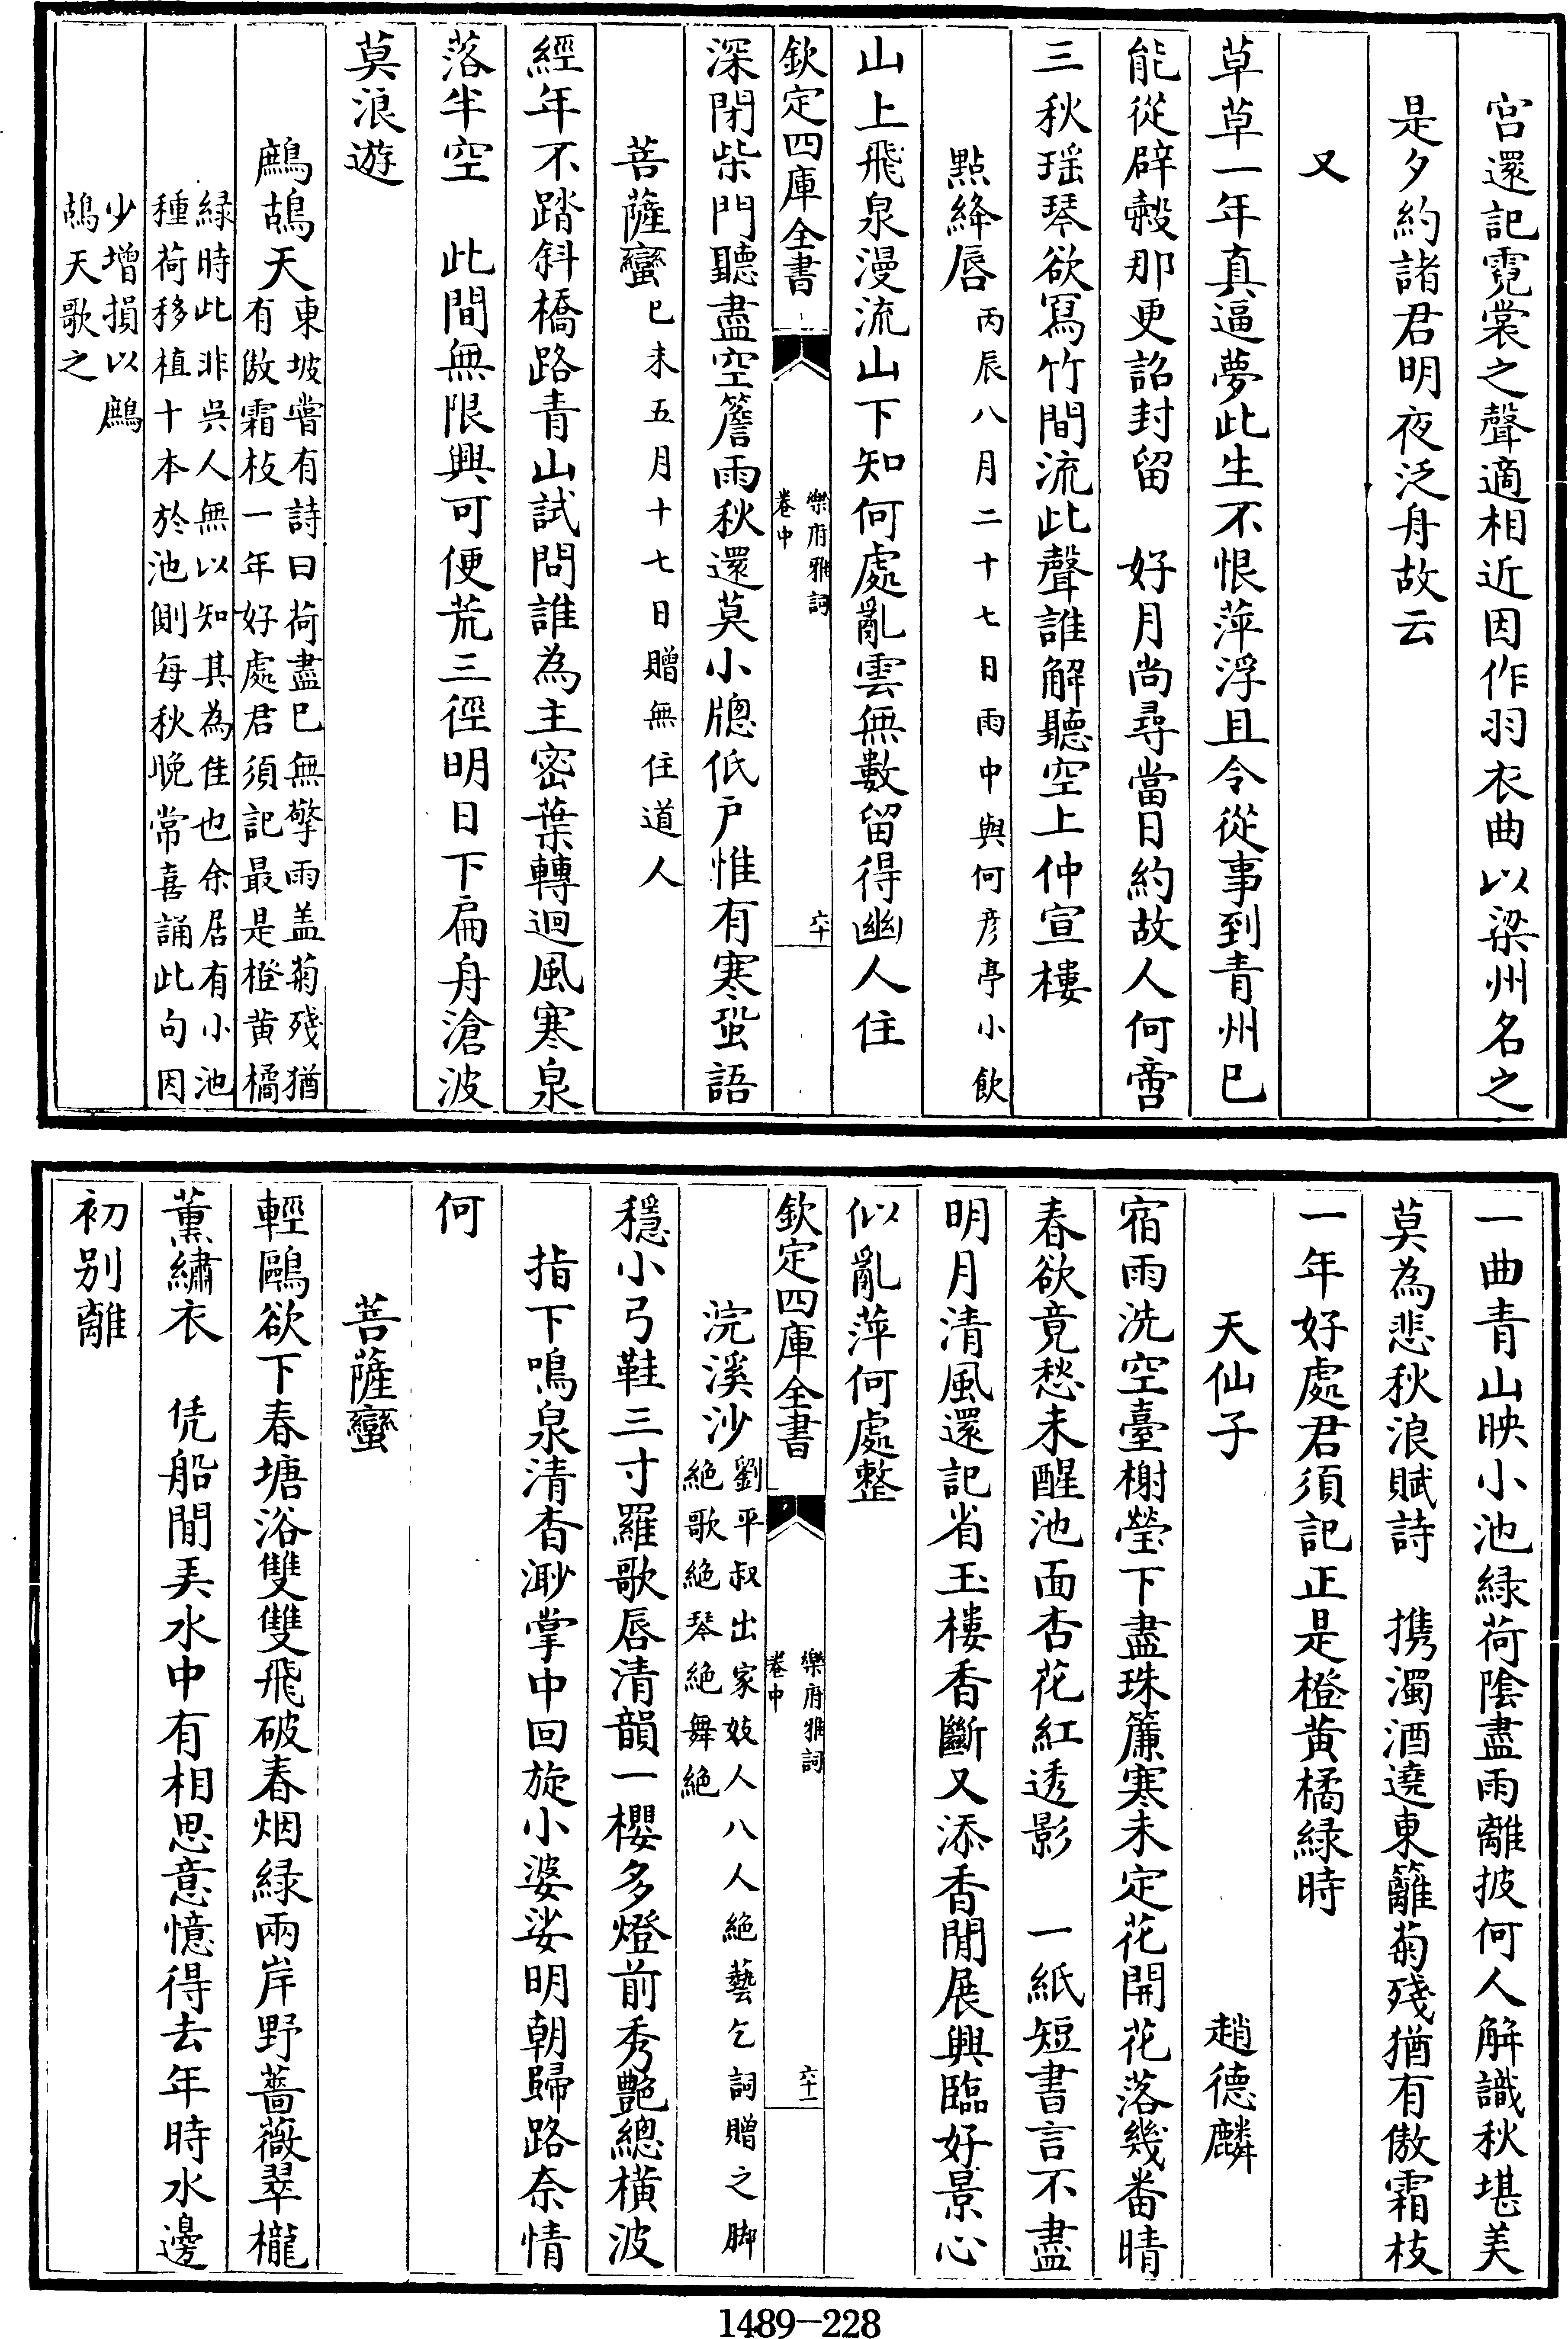 宫還記霓裳之聲適相近因作羽衣曲以梁州名之
是夕約諸君明夜泛舟故云
又
草草一年真逼夢此生不恨萍浮且令從事到青州已
能從辟穀那更詔封留　好月尚尋當日約故人何啻
三秋瑶琴欲寫竹間流此聲誰解聽空上仲宣樓
點絳唇丙辰八月二十七日雨中與何彦亭小飲
山上飛泉漫流山下知何處亂雲無數留得幽人住
欽定四庫全書
樂府雅詞
卷中
六十
深閉柴門聽盡空簷雨秋還莫小牕低户惟有寒螿語
菩薩蠻已未五月十七日贈無住道人
經年不踏斜橋路青山試問誰為主密葉轉迴風寒泉
落半空　此間無限興可便荒三徑明日下扁舟滄波
莫浪遊
鷓鴣天東坡嘗有詩曰荷盡已無擎雨盖菊殘猶
有傲霜枝一年好處君須記最是橙黄橘
緑時此非吳人無以知其為佳也余居有小池
種荷移植十本於池側每秋晚常喜誦此句因
少增損以鷓
鴣天歌之
一曲青山映小池緑荷陰盡雨離披何人解識秋堪美
莫為悲秋浪賦詩　携濁酒遶東籬菊殘猶有傲霜枝
一年好處君須記正是橙黄橘緑時
天仙子　趙德麟
宿雨洗空臺榭瑩下盡珠簾寒未定花開花落幾番晴
春欲竟愁未醒池面杏花紅透影　一紙短書言不盡
明月清風還記省玉樓香斷又添香閒展興臨好景心
似亂萍何處整
欽定四庫全書
樂府雅詞
卷中
六十一
浣溪沙劉平叔出家妓人八人絶藝乞詞贈之脚
絶歌絶琴絶舞絶
穩小弓鞋三寸羅歌唇清韻一櫻多燈前秀艶總橫波
指下鳴泉清杳渺掌中回旋小婆娑明朝歸路奈情
何
菩薩蠻
輕鷗欲下春塘浴雙雙飛破春烟緑兩岸野薔薇翠櫳
薰繡衣　凭船閒弄水中有相思意憶得去年時水邊
初别離
1489—228